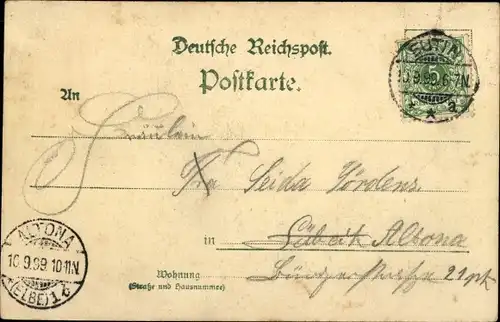 Deutsche Reichspost.
Postkarte.
EUTIN
10.9.99.6-7N.
* a
An
Fräulein
Seida Jördens
in Lübeck Altona
Wohnung
(Straße und Hausnummer)
21 pt
ALTONA
10.9.99 10-11N.
(ELBE) 1 c